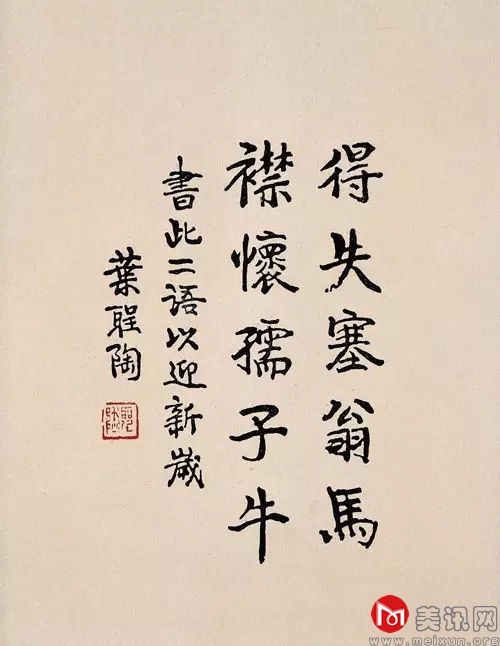 得失塞翁馬
襟懷孺子牛
書此二语以迎新歲
葉聖陶
美讯网
www.meixun.org